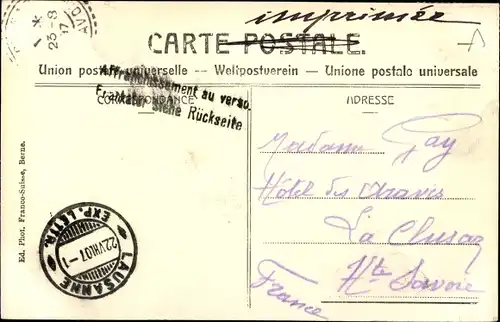 imprimée
CARTE POSTALE.
Union postale universelle -- Weltpostverein -- Unione postale universale
Affranchissement au verso.
Frankatur siehe Rückseite
CORRESPONDANCE
ADRESSE
Madame Gay
Hôtel des Aravis
La Clusaz
Hte Savoie
France
Ed. Phot. Franco-Suisse, Berne.
25-8
LAUSANNE
22.VIII.07-1
EXP. LETTR.